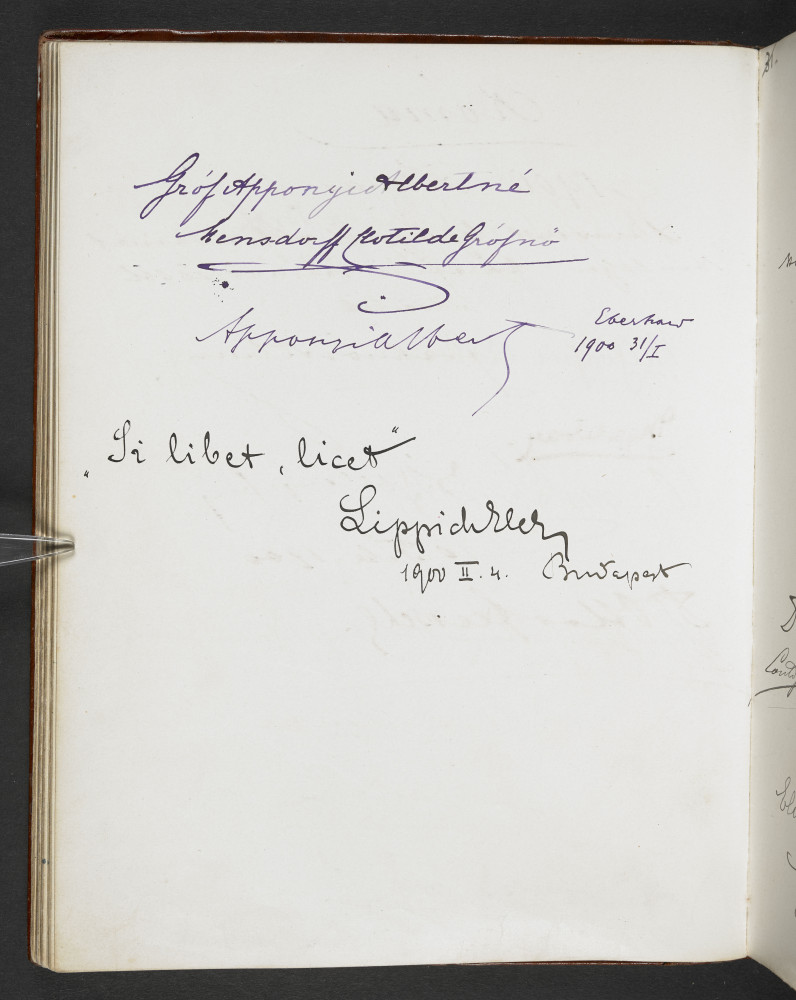 Gróf Apponyi Albertné
Mensdorff Clotilde Grófnö
Apponyi Albert
Eberhard
1900 31/I
„Si libet, licet“
Lippich Elek
1900 II. 4. Budapest
31.